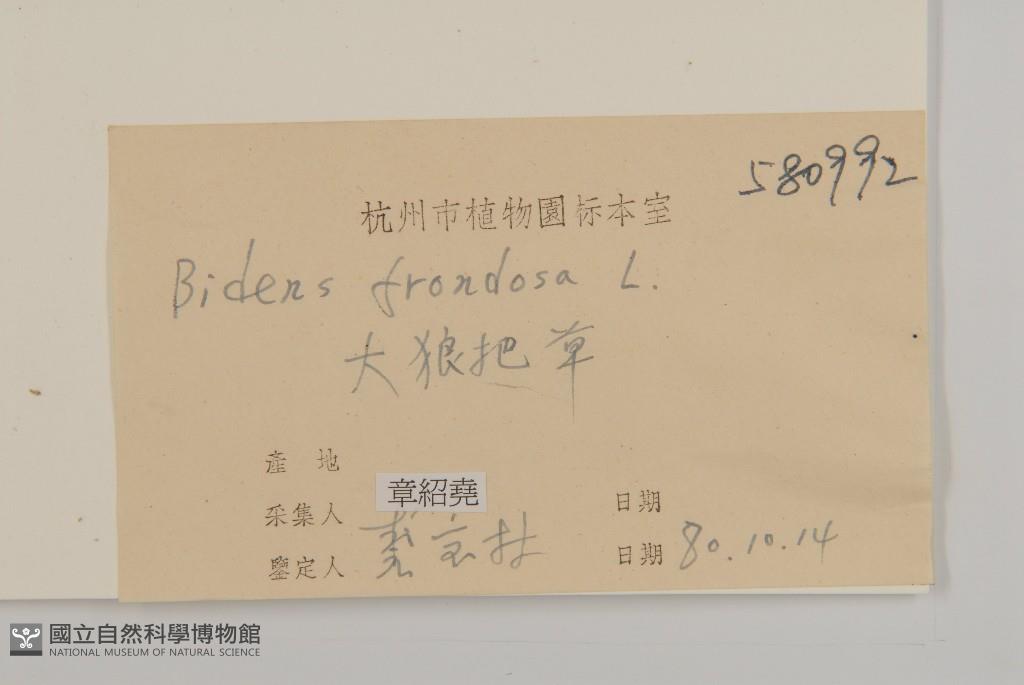 580992
杭州市植物園标本室
Bidens frondosa L.
大狼把草
產 地
章紹堯
采集人 日期
鑒定人 日期 80.10.14
國立自然科學博物館
NATIONAL MUSEUM OF NATURAL SCIENCE